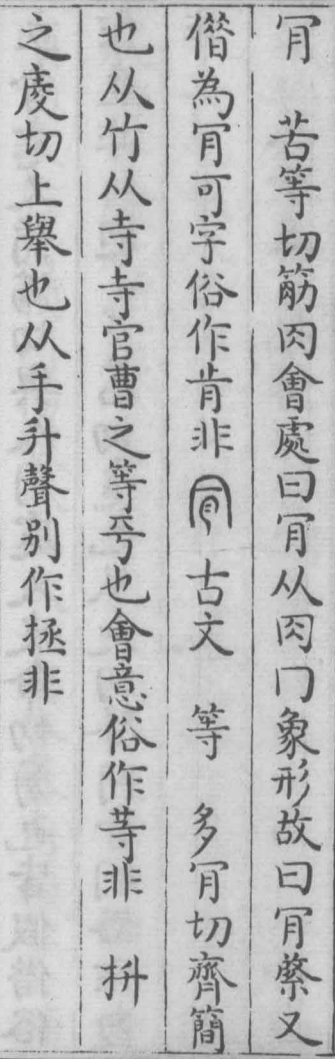 肎　苦等切筋肉會處曰肎从肉冂象形故曰肎綮又
偕為肎可字俗作肯非　古文　等　多肎切齊簡
也从竹从寺寺官曹之等平也會意俗作䓁非　抍
之庱切上舉也从手升聲别作拯非